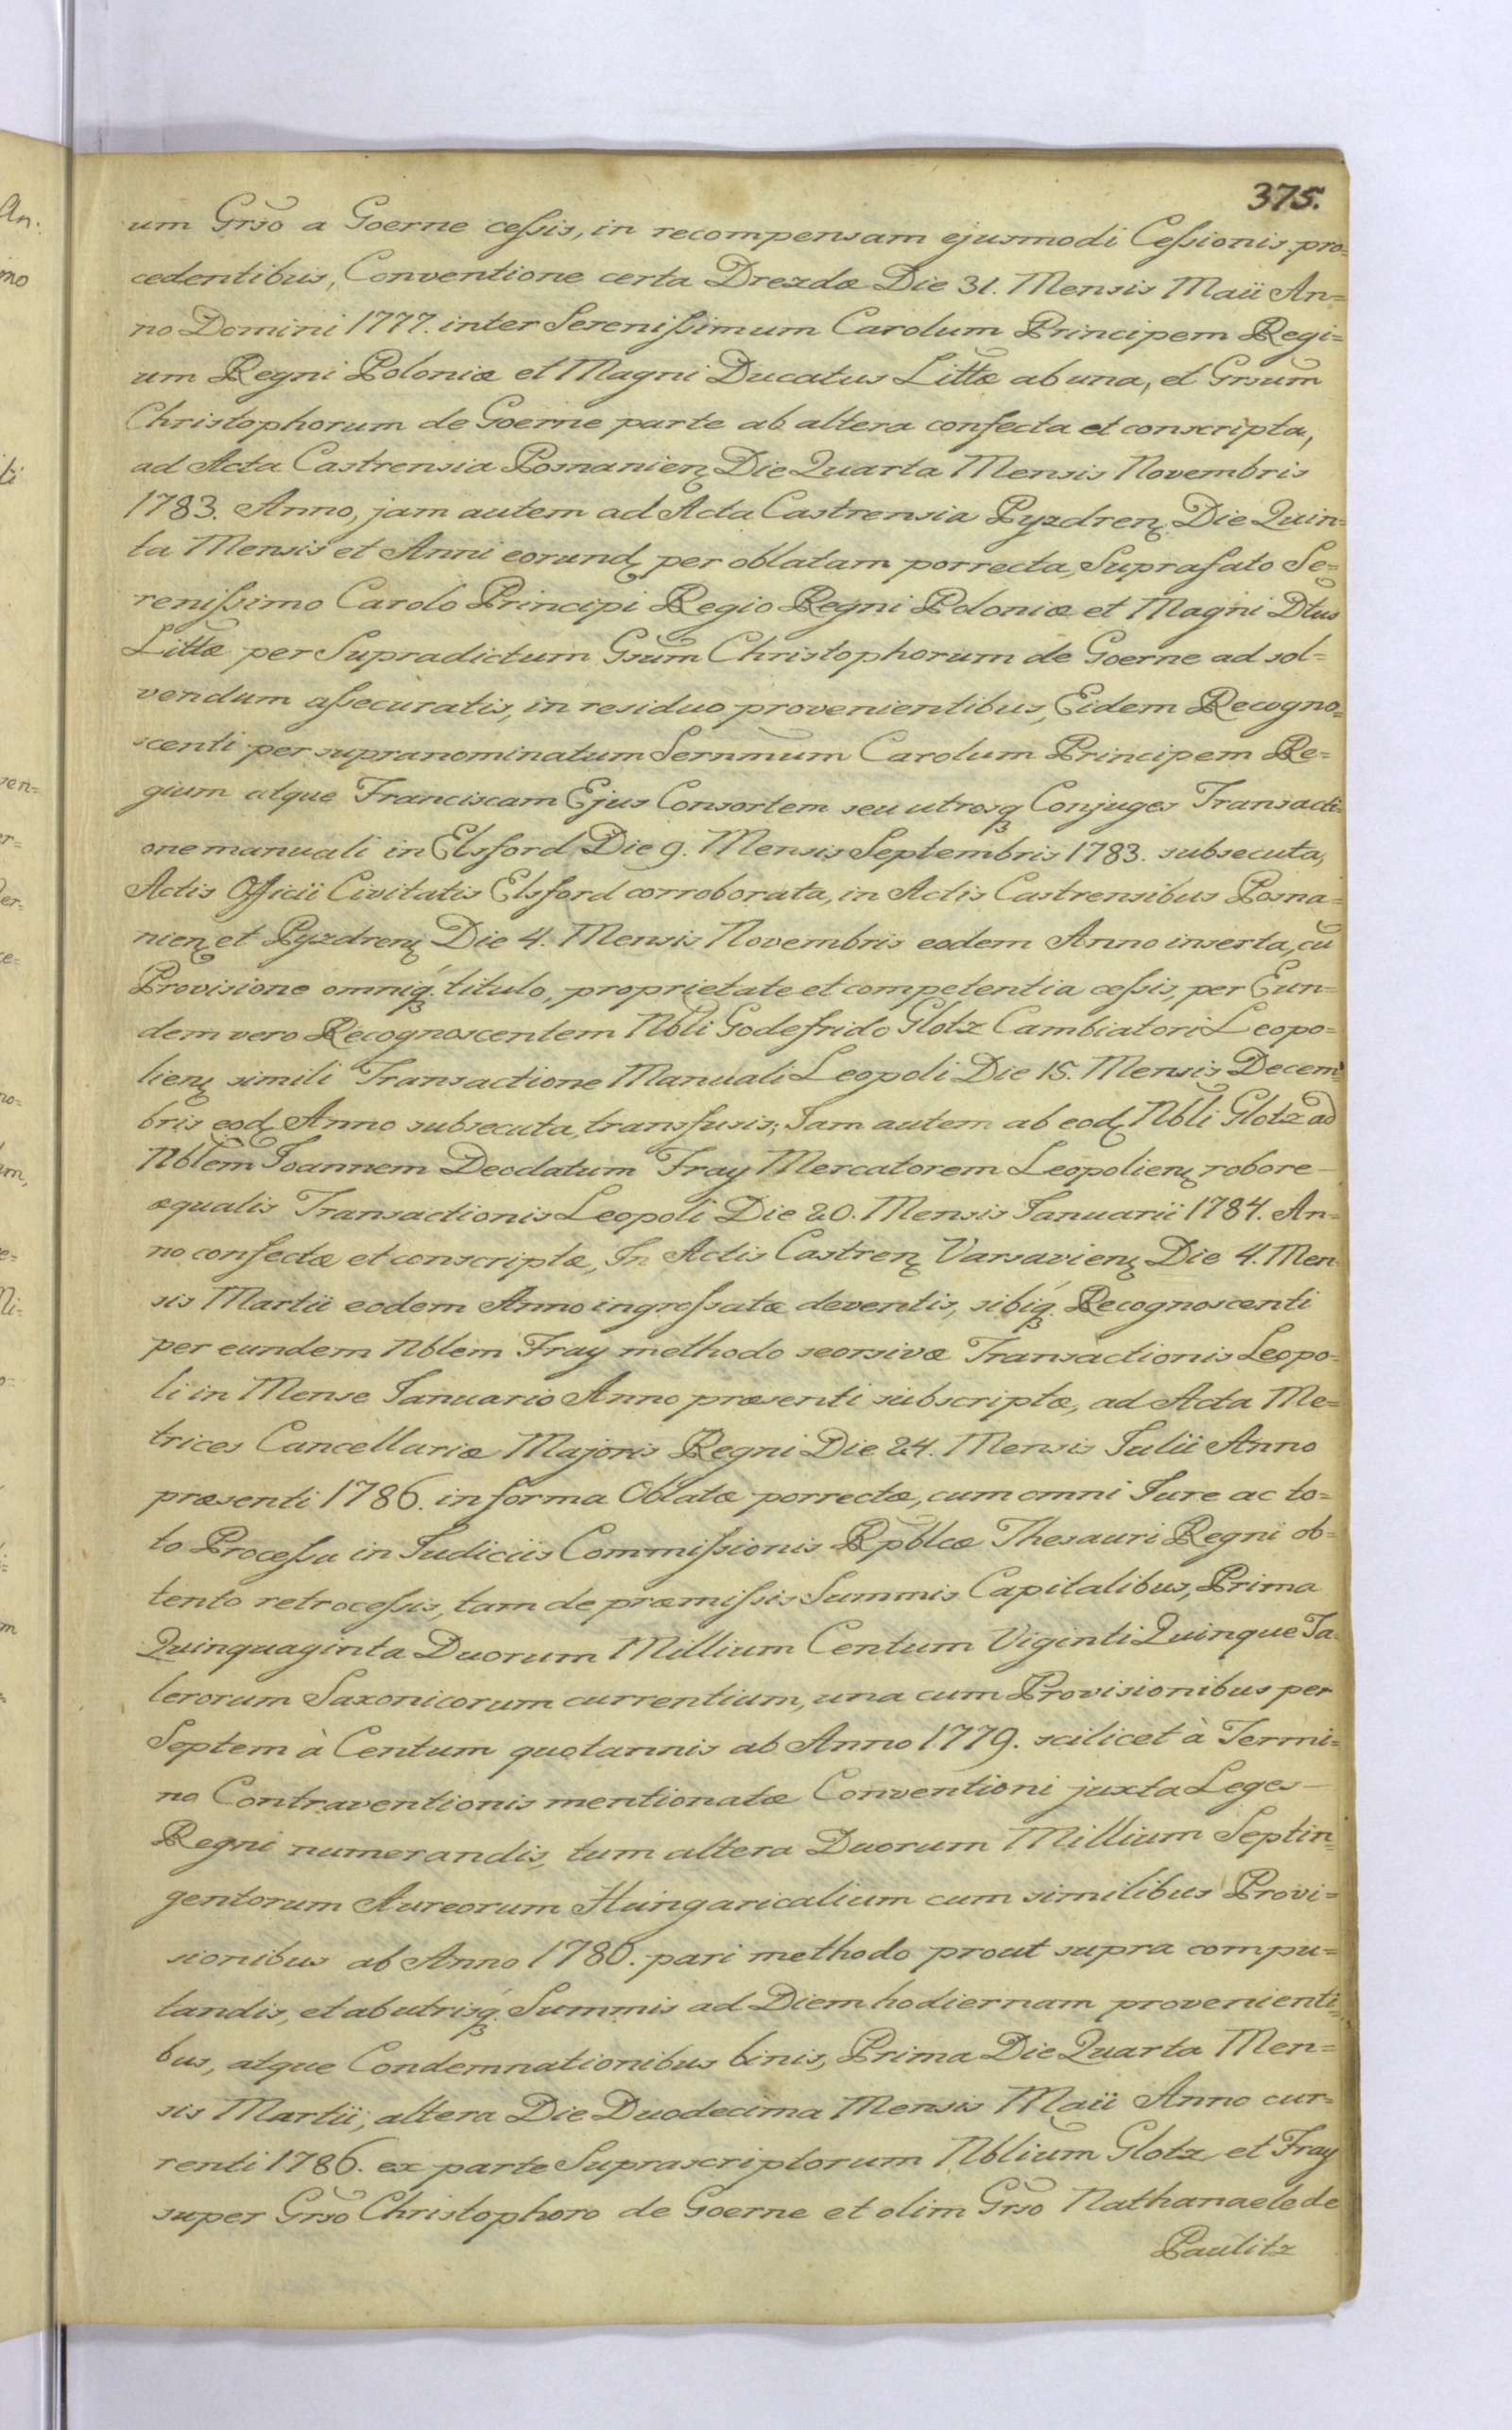 375.
um Grso a Goerne ceſsis, in recompensam ejusmodi Ceſsionis pro=
cedentibus, Conventione certa Drezdæ Die 31. Mensis Maii An=
no Domini 1777. inter Sereniſsimum Carolum Principem Regi=
um Regni Poloniæ et Magni Ducatus Littæ ab una, et Grsum
Christophorum de Goerne parte ab altera confecta et conscripta,
ad Acta Castrensia Posnanien Die Quarta Mensis Novembris
1783. Anno, jam autem ad Acta Castrensia Pyzdren Die Quin=
ta Mensis et Anni eorund per oblatam porrecta, Suprafato Se=
reniſsimo Carolo Principi Regio Regni Poloniæ et Magni Dtus
Littæ per Supradictum Gsum Christophorum de Goerne ad sol=
vendum aſsecuratis, in residuo provenientibus, Eidem Recogno=
scenti per supranominatum Sernmum Carolum Principem Re=
gium atque Franciscam Ejus Consortem seu utrosq Conjuges Transacti=
one manuali in Elsford Die 9. Mensis Septembris 1783. subsecuta,
Actis Officii Civitatis Elsford corroborata, in Actis Castrensibus Posna=
nien et Pyzdren Die 4. Mensis Novembris eodem Anno inserta, cu
Provisione omniq titulo, proprietate et competentia ceſsis, per Eun=
dem vero Recognoscentem Nbli Godefrido Glotz Cambiatori Leopo=
lien simili Transactione Manuali Leopoli Die 15. Mensis Decem=
bris eod Anno subsecuta, transfusis; Jam autem ab eod Nbli Glotz ad
Nblem Joannem Deodatum Fray Mercatorem Leopolien robore
æqualis Transactionis Leopoli Die 20. Mensis Januarii 1784. An=
no confectæ et conscriptæ, In Actis Castren Varsavien Die 4. Men
sis Martii eodem Anno ingroſsatæ deventis, sibiq Recognoscenti
per eundem Nblem Fray methodo seorsivæ Transactionis Leopo=
li in Mense Januario Anno præsenti subscriptæ, ad Acta Me=
trices Cancellariæ Majoris Regni Die 24. Mensis Julii Anno
præsenti 1786. in forma Oblatæ porrectæ, cum omni Jure ac to=
to Proceſsu in Judiciis Commiſsionis Rpblcæ Thesauri Regni ob=
tento retroceſsis, tam de præmiſsis Summis Capitalibus, Prima
Quinquaginta Duorum Millium Centum Viginti Quinque Ta=
lerorum Saxonicorum currentium, una cum Provisionibus per
Septem à Centum quotannis ab Anno 1779. scilicet à Termi=
no Contraventionis mentionatæ Conventioni juxta Leges
Regni numerandis, tum altera Duorum Millium Septin=
gentorum Aureorum Hungaricalium cum similibus Provi=
sionibus ab Anno 1780. pari methodo prout supra compu=
tandis, et ab utrisq Summis ad Diem hodiernam provenienti=
bus, atque Condemnationibus binis, Prima Die Quarta Men=
sis Martii, altera Die Duodecima Mensis Maii Anno cur=
renti 1786. ex parte Suprascriptorum Nblium Glotz et Fray
super Grso Christophoro de Goerne et olim Grso Nathanaele de
Paulitz